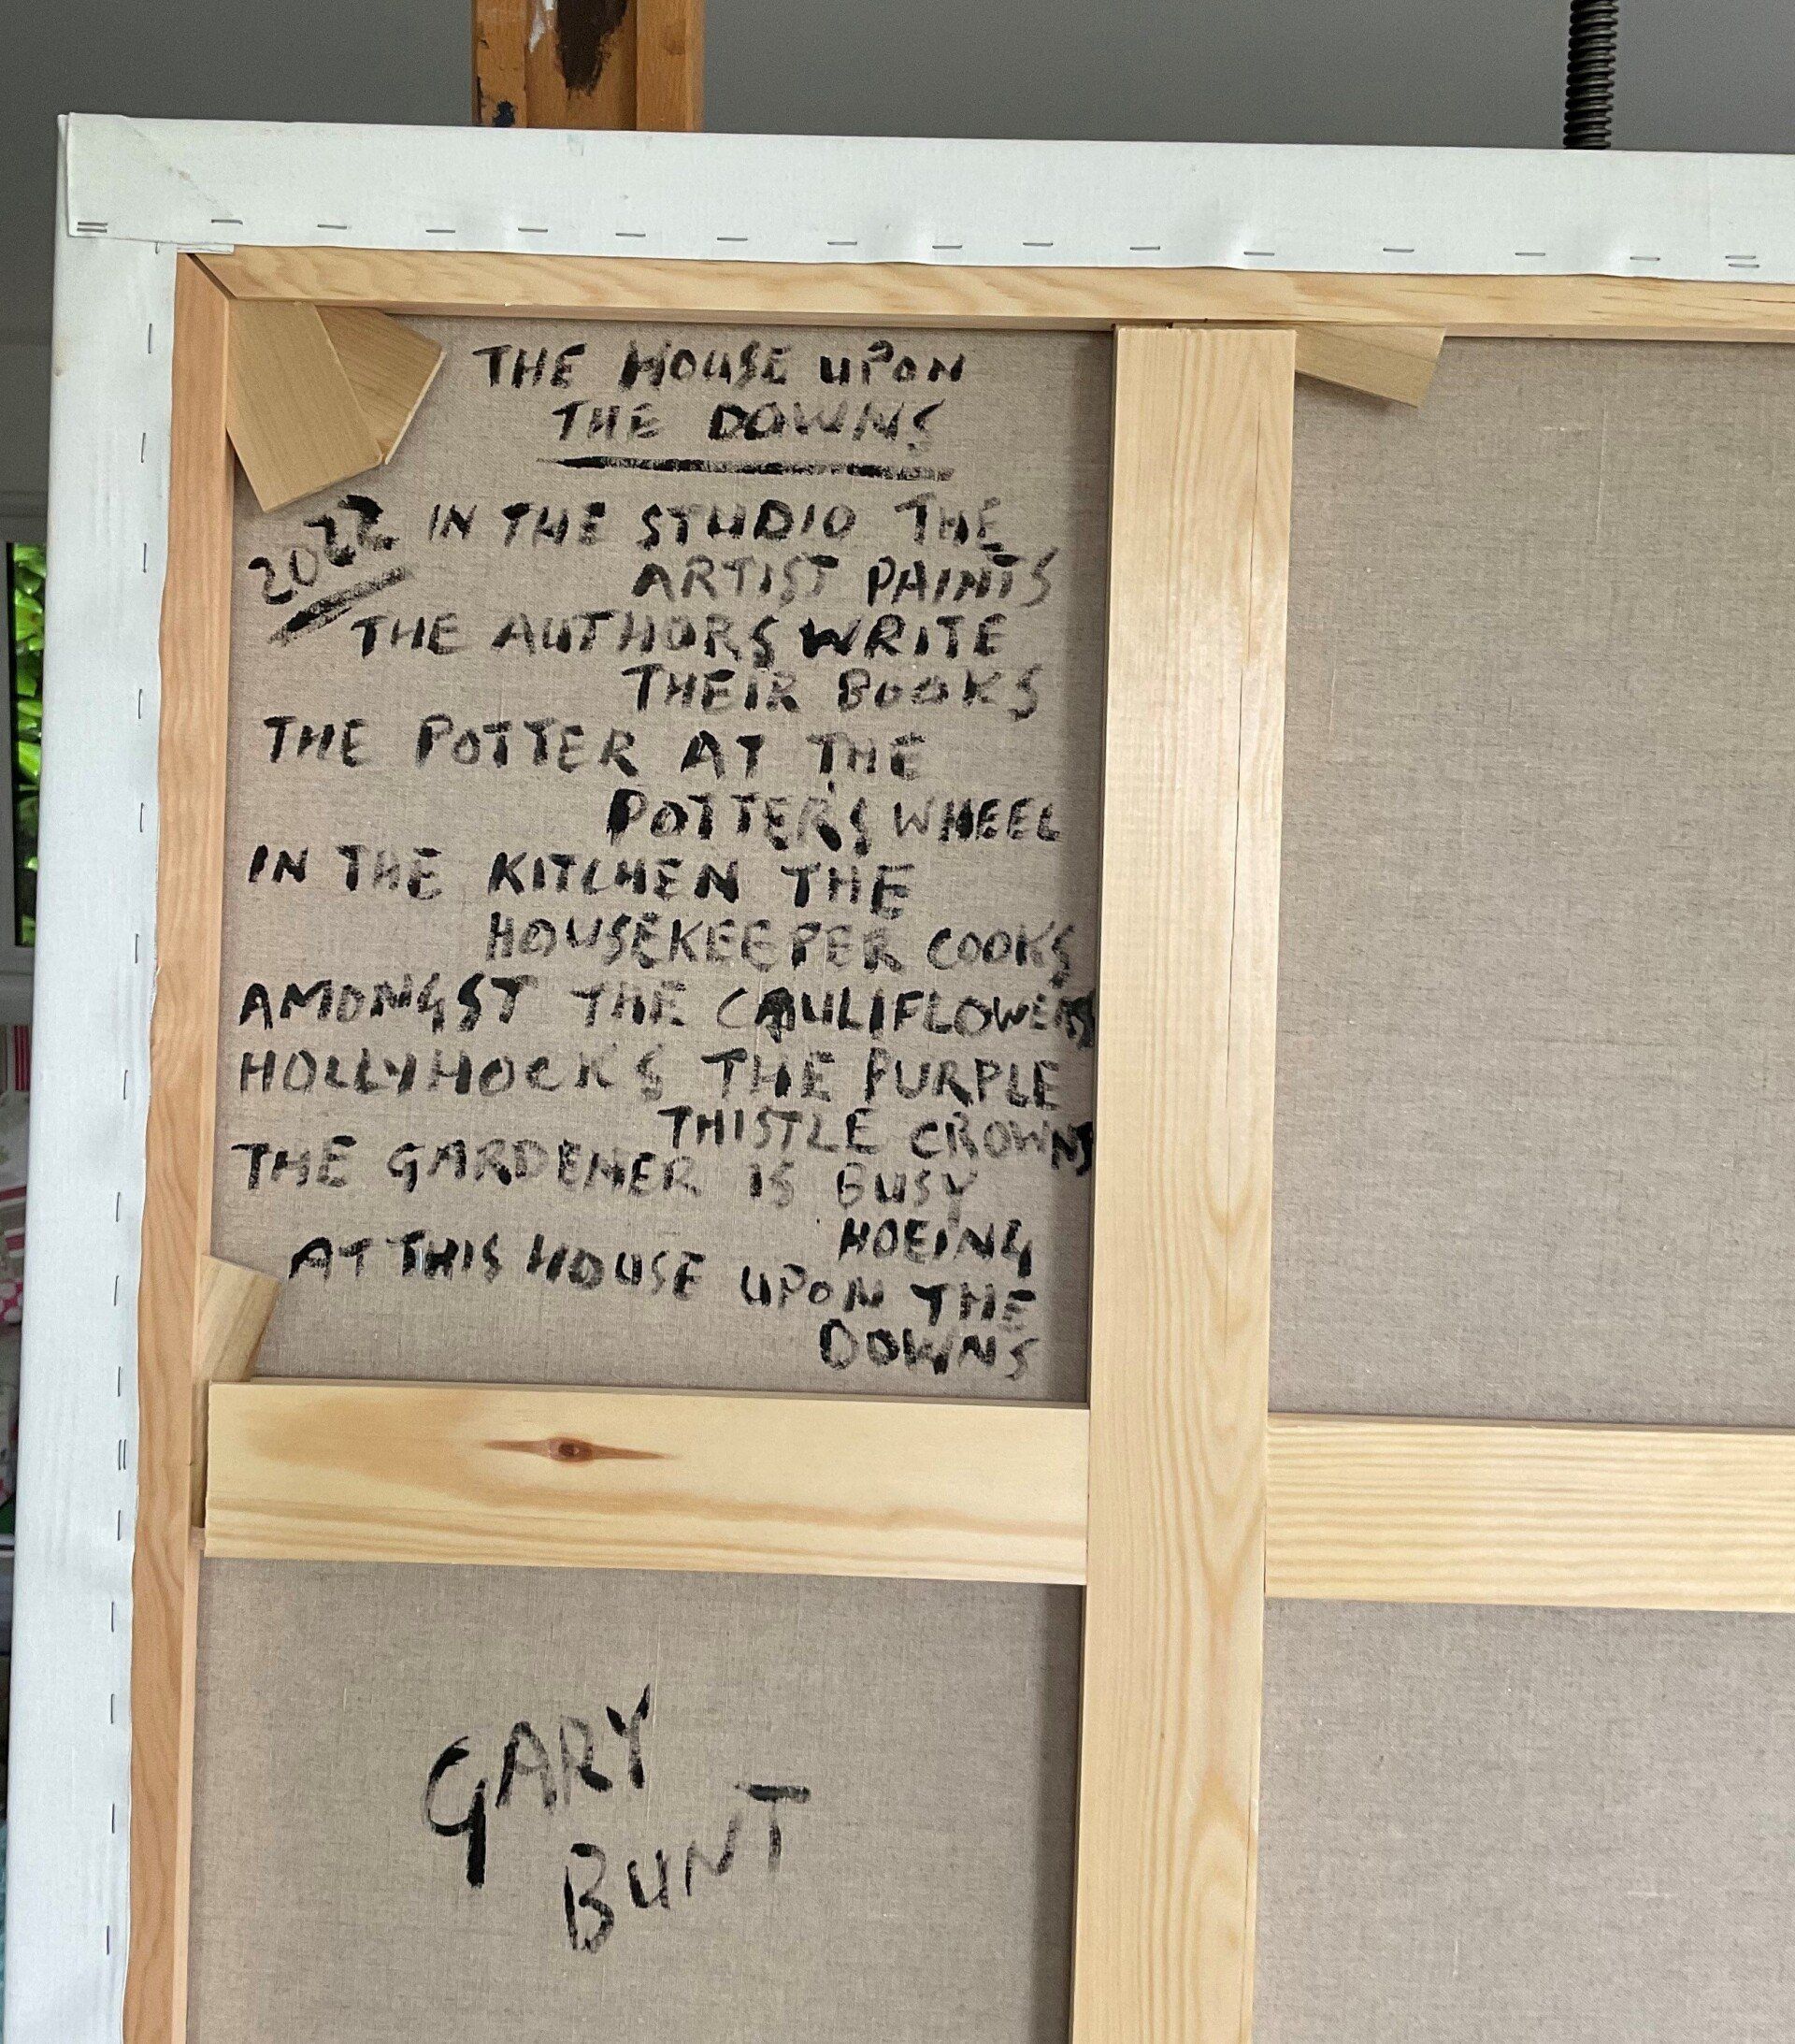 THE HOUSE UPON
THE DOWNS
2022
IN THE STUDIO THE
ARTIST PAINTS
THE AUTHORS WRITE
THEIR BOOKS
THE POTTER AT THE
POTTERS WHEEL
IN THE KITCHEN THE
HOUSEKEEPER COOKS
AMONGST THE CAULIFLOWERS
HOLLYHOCKS THE PURPLE
THISTLE CROWNS
THE GARDENER IS BUSY
HOEING
AT THIS HOUSE UPON THE
DOWNS
GARY
BUNT